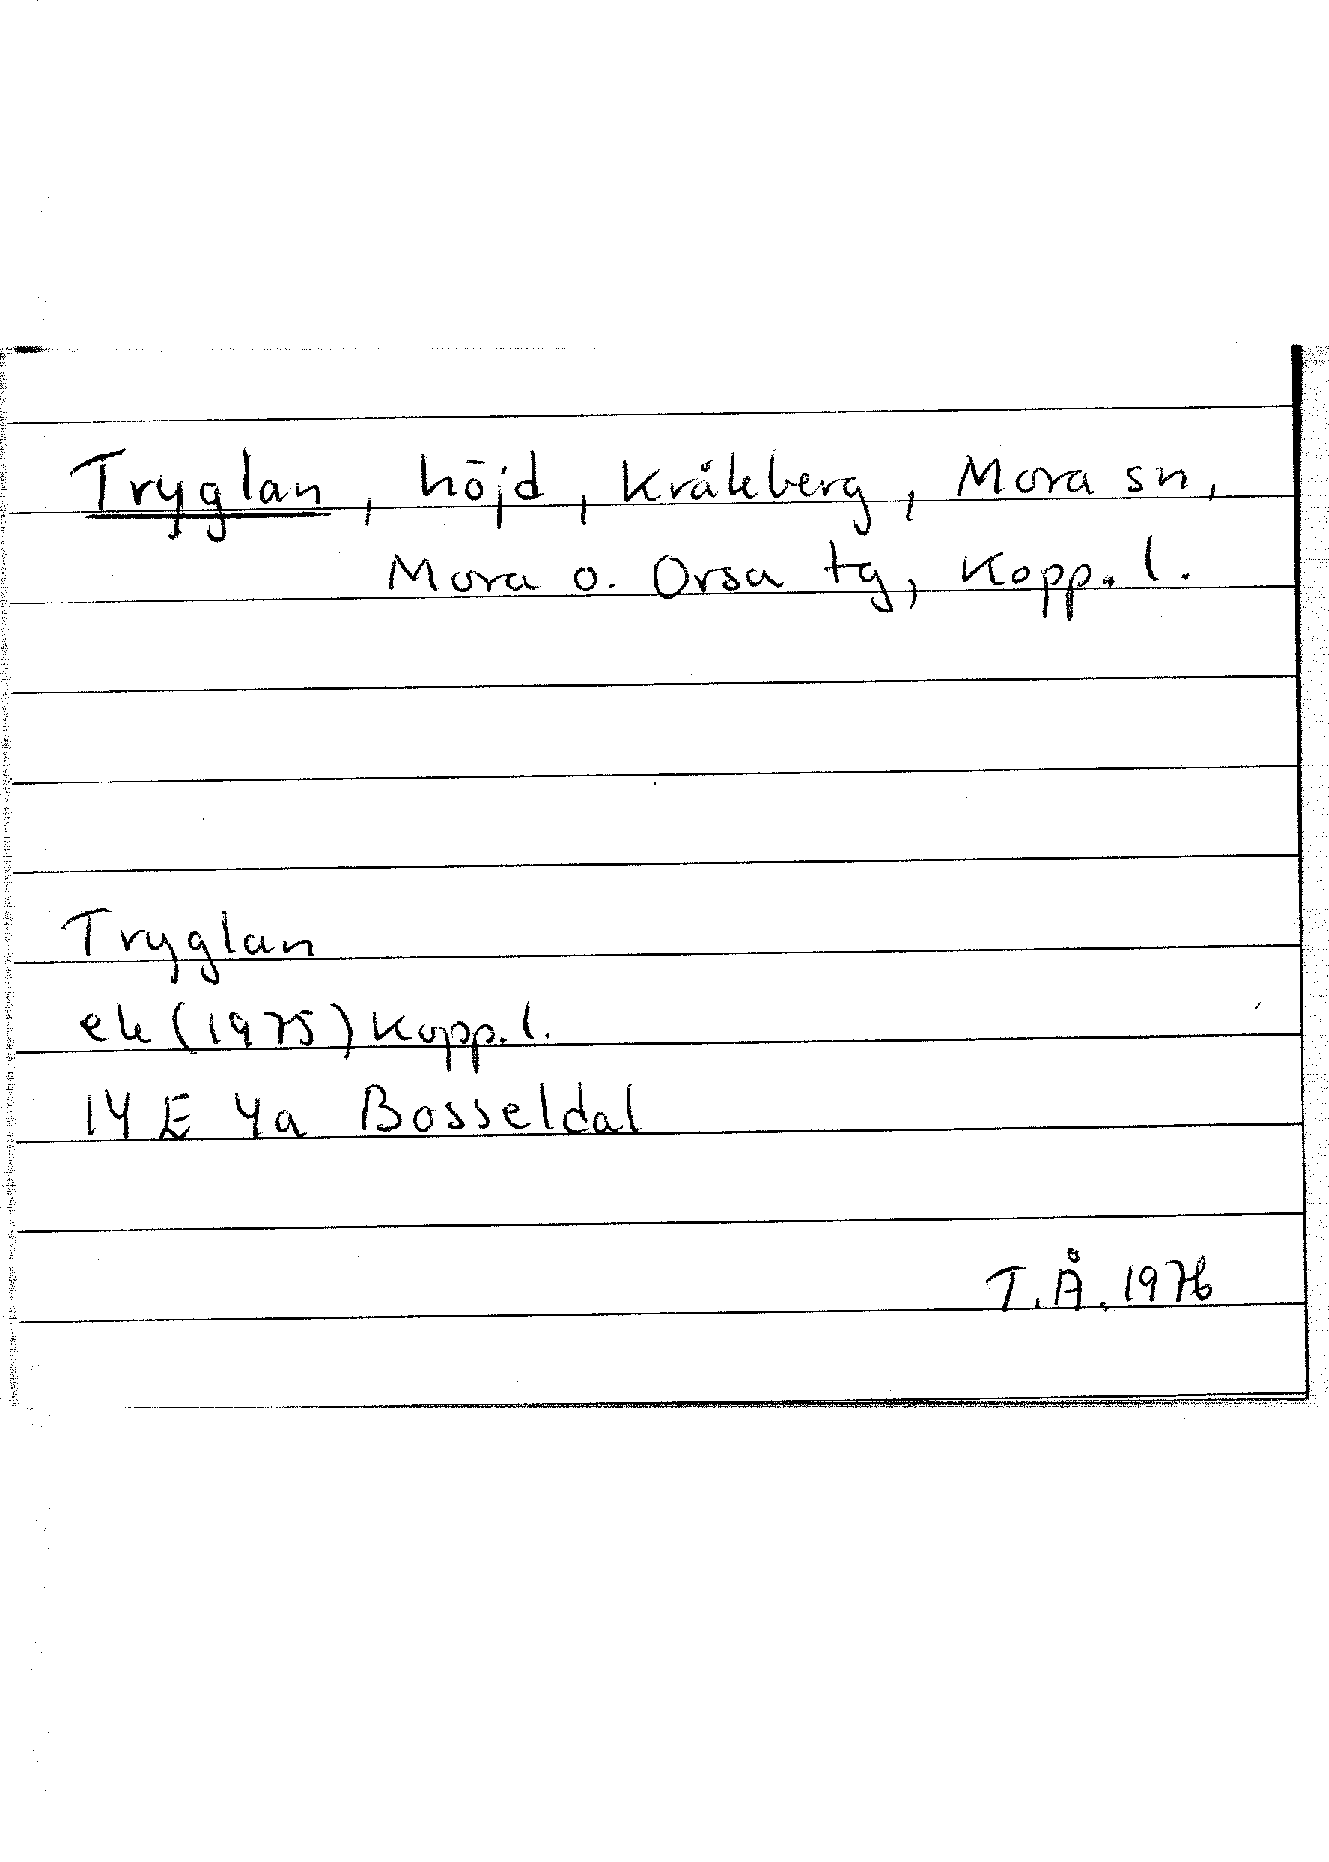 Tryglan, höjd, Kråkberg, Mora sn,
Mora o. Orsa tg, Kopp. l.
Tryglan
ek (1975) Kopp. l.
14 E 4a Bosseldal
T.Å. 1976